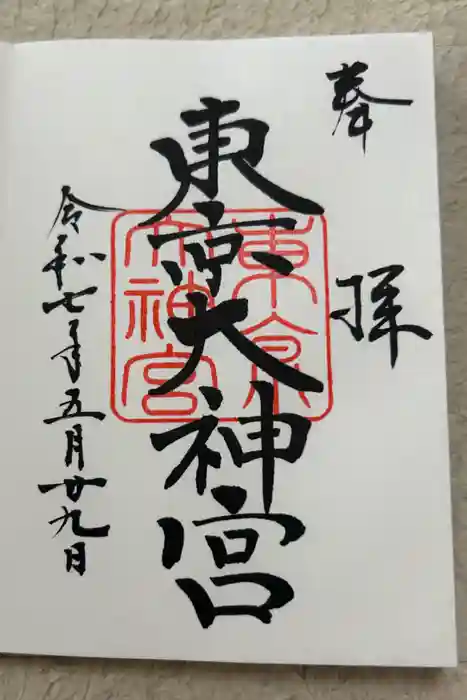 奉拝
東京大神宮
東京大神宮
令和七年五月廿九日